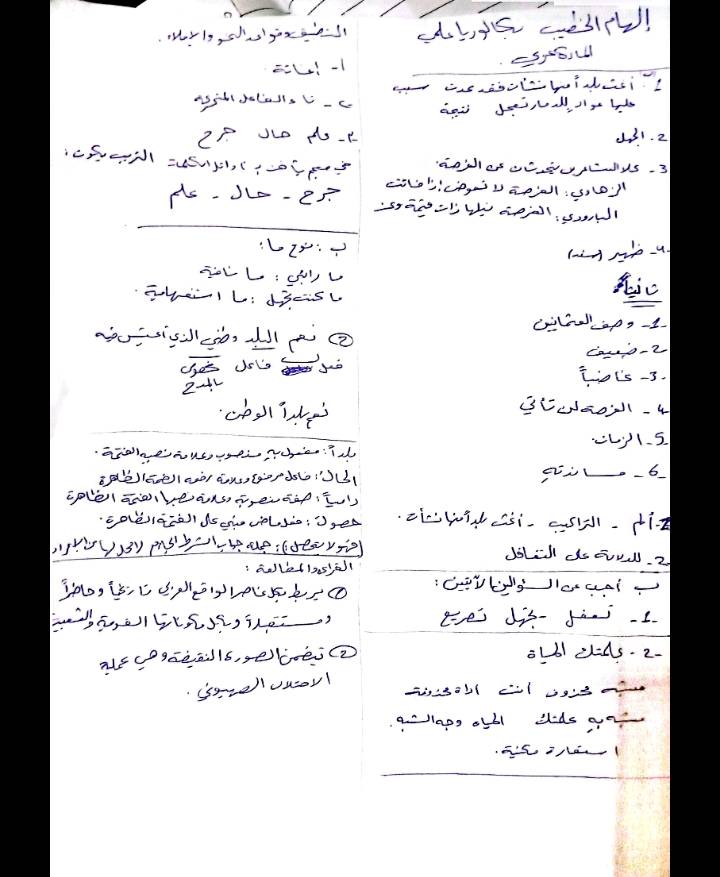 إلهام الخطيب بكالوريا علمي
المادة عربي.
1. أغث بلداً منها نشأت فقد عدت سبب
عليها عواد للدمار تعجل نتيجة
2. الجهل
3. كلا الشاعرين يتحدثان عن الفرصة.
الزهاوي: الفرصة لا تعوض إذا فاتت
البارودي: الفرصة نيلها ذات قيمة
4- ظهير (سند)
ثانياً
1- وصف العثمانيين
2- ضعيف
3- غاضباً
4- الفرصة لن تأتي
5- الزمان
6- مساندته
ألم - التراكيب - أغث بلداً منها نشأت.
2- للدلالة على التفاؤل
ب أجب عن السؤالين الآتيين:
1- تعقل - تجهل تصريع
2- علمتك الحياة
مشبه محذوف أنت أداة محذوفة
مشبه به علمتك الحياة وجه الشبه
استعارة مكنية.
التطبيق وقواعد النحو والإملاء.
1- إغاثة.
2- تاء الفاعل المتحركة
3- علم حال جرح
في معجم يأخذ بأوائل الكلمات الترتيب يكون:
جرح - حال - علم
ب: نوع ما:
ما رأيي: ما نافية
ما كنت تجهل: ما استفهامية.
② نعم البلد وطني الذي أعيش فيه
فعل فاعل مخصوص
بالمدح
نعم بلداً الوطن.
بلداً: مفعول به منصوب وعلامة نصبه الفتحة.
الحال: فاعل مرفوع وعلامة رفعه الضمة الظاهرة
دامياً: صفة منصوبة وعلامة نصبها الفتحة الظاهرة
فعل ماض مبني على الفتحة الظاهرة.
جملة جواب الشرط الجازم لا محل لها من الإعراب
القراءة والمطالعة:
① يربط بكل عناصر الواقع العربي تاريخياً وحاضراً
ومستقبلاً وبكل مكوناتها القومية والشعبية
② تتضمن الصورة النقيضة وهي عملية
الاحتلال الصهيوني.